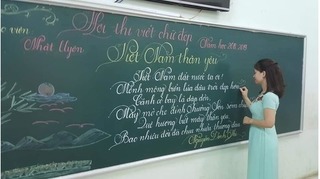 Hội thi viết chữ đẹp
Năm học
viên
Nhật Uyên
Việt Nam thân yêu
Việt Nam đất nước ta ơi!
Mênh mông biển lúa đâu trời đẹp hơn
Cánh cò bay lả dập dờn,
Mây mờ che đỉnh Trường Sơn sớm
Quê hương biết mấy thân yêu,
Bao nhiêu đời đã chịu nhiều thương đau
Nguyễn Đình Thi